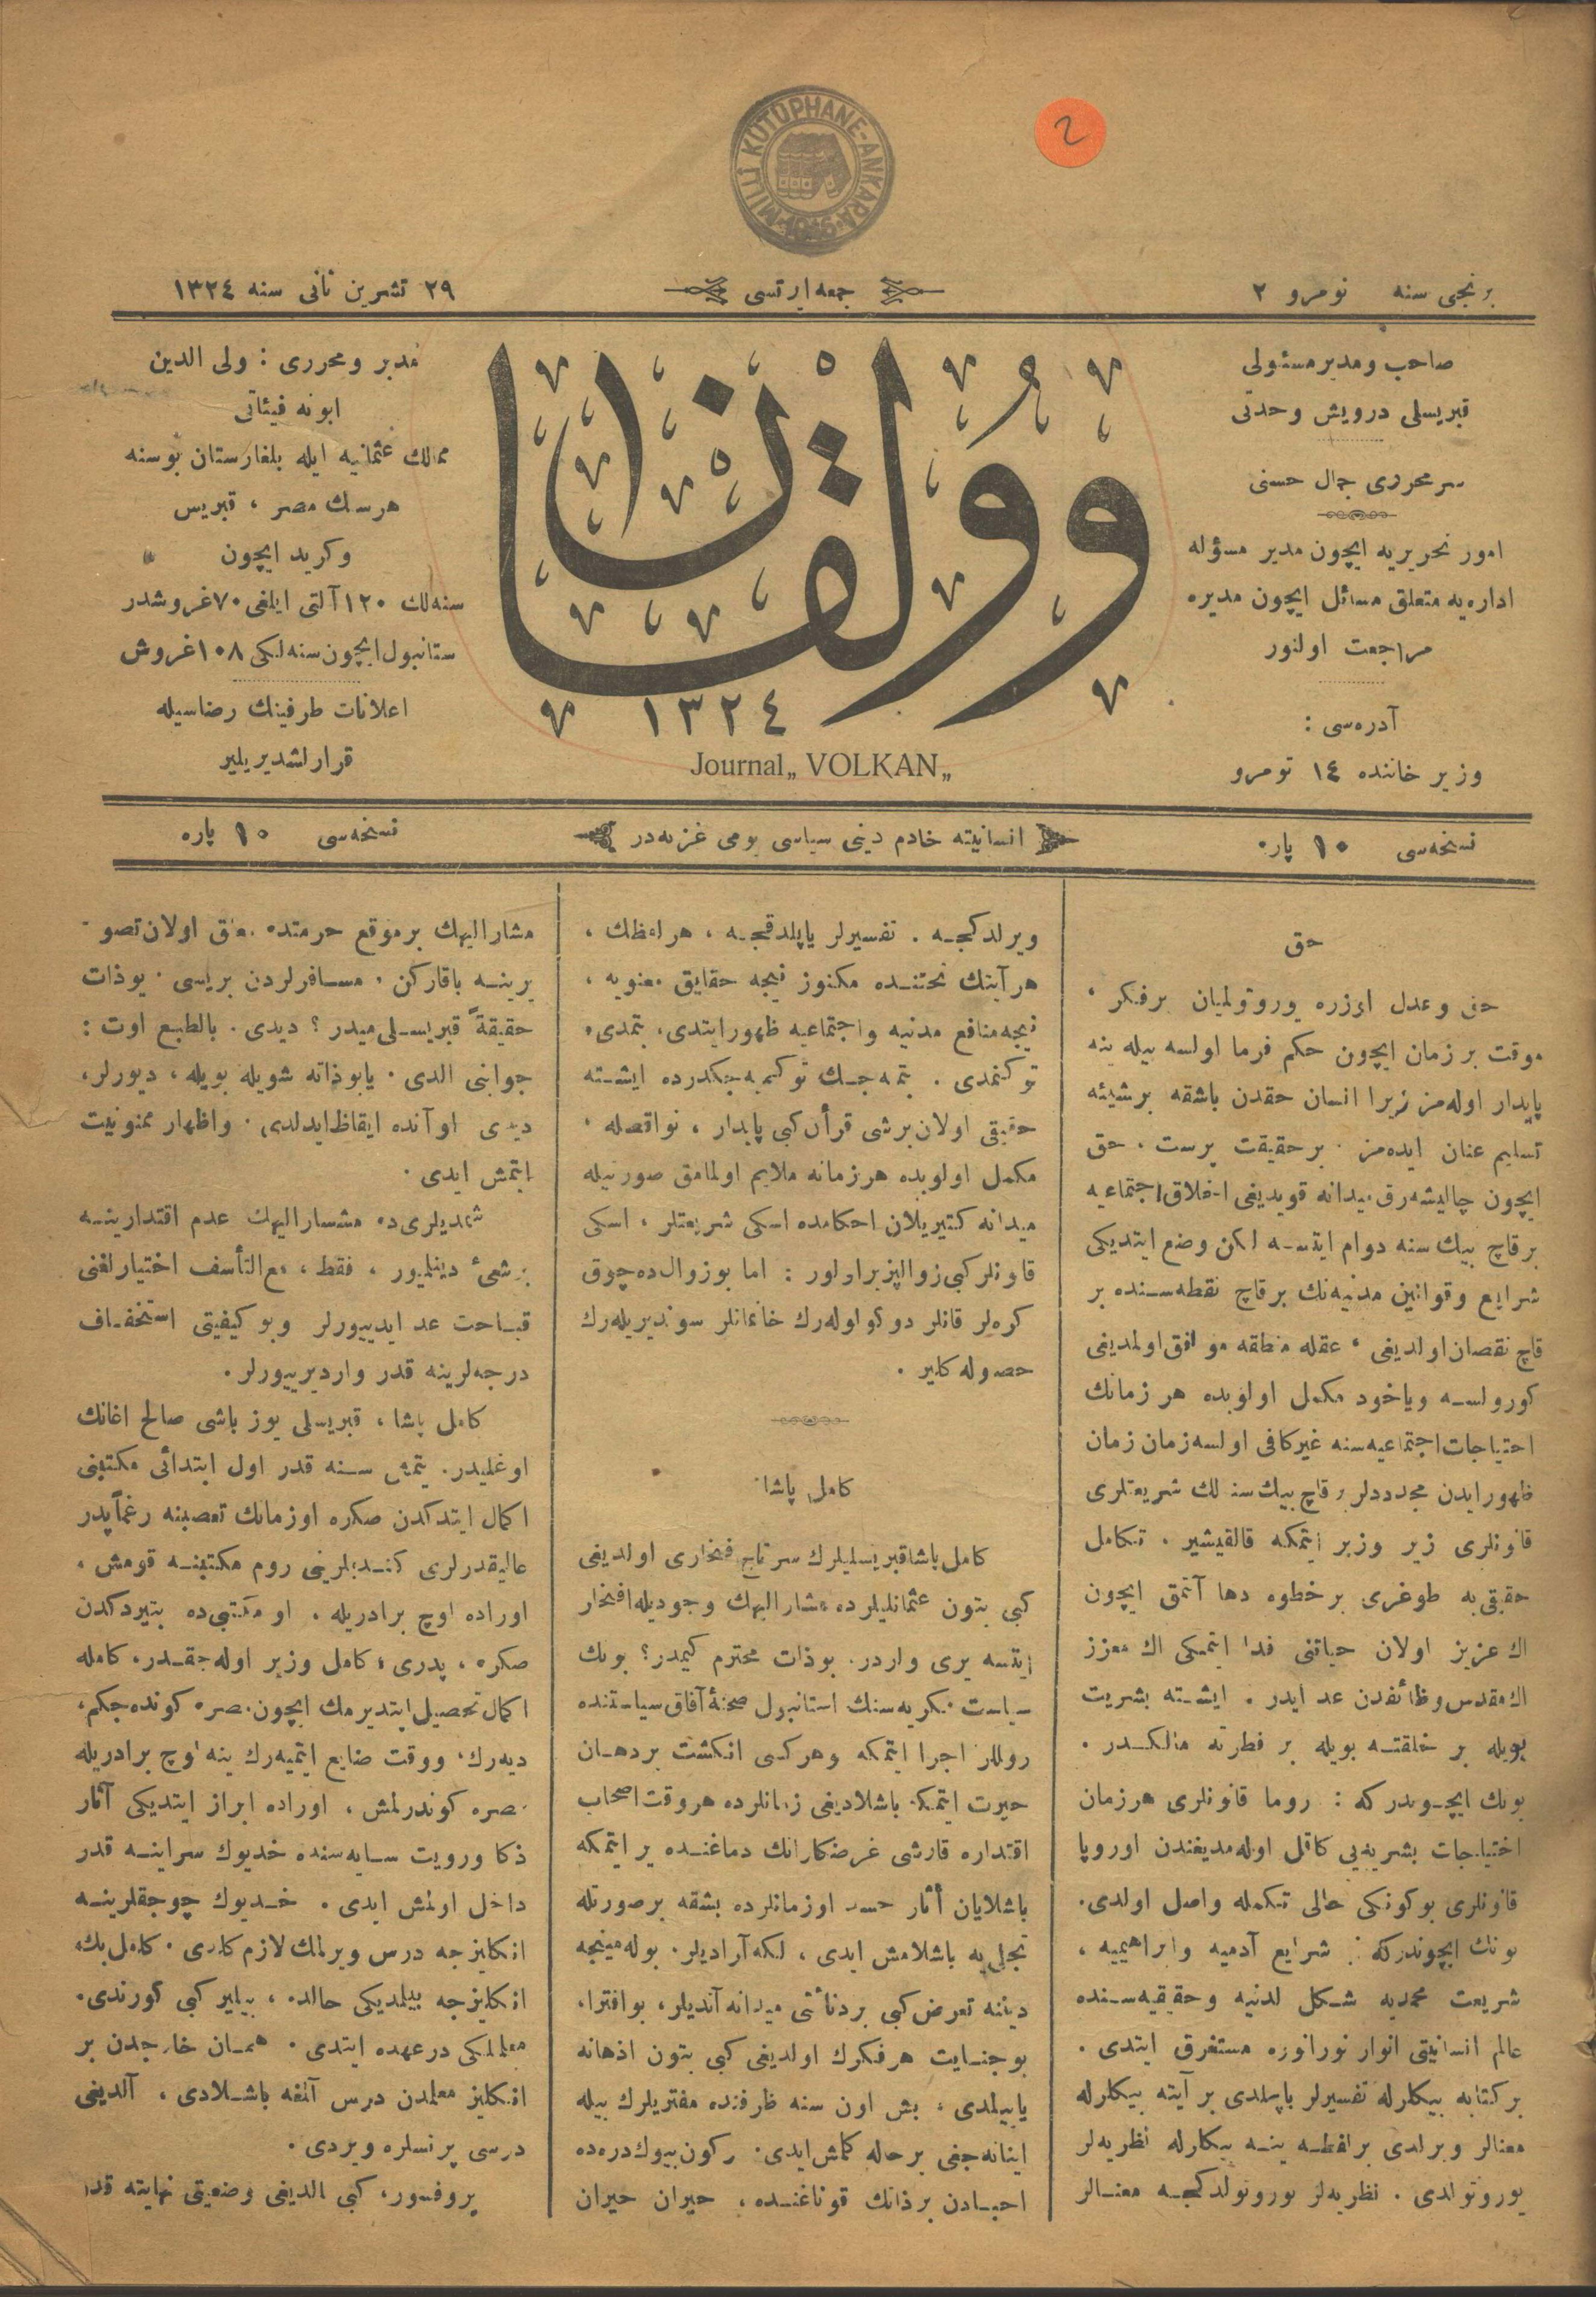 MİLLÎ KÜTÜPHANE-ANKARA
2
برنجی سنه نومرو ٢
جمعه ايرتسی
٢٩ تشرين ثانی سنه ١٣٢٤
صاحب ومدير مسئولی
قبريسلی درويش وحدتی
سرمحرری جمال حسنی
امور تحريريه ايچون مدير مسؤله
اداره‌يه متعلق مسائل ايچون مديره
مراجعت اولنور
آدره‌سی :
وزير خاننده ١٤ نومرو
وولقان
١٣٢٤
Journal „ VOLKAN „
مدير ومحرری : ولی الدين
ابونه فيئاتی
ممالك عثمانيه ايله بلغارستان بوسنه
هرسك مصر ، قبريس
وكريد ايچون
سنه‌لك ١٢٠ آلتی ايلغی ٧٠ غروشدر
ستانبول ايچون سنه‌لكی ١٠٨ غروش
اعلانات طرفينك رضاسيله
قرارلشديريلير
نسخه‌سی ١٠ پاره
انسانيته خادم دينی سياسی يومی غزته‌در
نسخه‌سی ١٠ پاره
حق
حق وعدل اوزره يوروتولميان برفكر ،
موقت بر زمان ايچون حكم فرما اولسه بيله ينه
پايدار اوله‌مز زيرا انسان حقدن باشقه برشيئه
تسليم عنان ايده‌مز . برحقيقت پرست ، حق
ايچون چاليشه‌رق ميدانه قويديغی اخلاق اجتماعيه
برقاچ بيك سنه دوام ايتسه لكن وضع ايتديكی
شرايع وقوانين مدنيه‌نك برقاچ نقطه‌سنده بر
قاچ نقصان اولديغی ، عقله منطقه موافق اولمديغی
كورولسه وياخود مكمل اولوبده هر زمانك
احتياجات اجتماعيه‌سنه غيركافی اولسه زمان زمان
ظهور ايدن مجددلر برقاچ بيك سنه لك شريعتلری
قانونلری زير وزبر ايتمكه قالقيشير . تكامل
حقيقی‌يه طوغری برخطوه دها آتمق ايچون
اك عزيز اولان حياتنی فدا ايتمكی اك معزز
اك مقدس وظائفدن عد ايدر . ايشته بشريت
بويله بر خلقته بويله بر فطرته مالكدر .
بونك ايچوندركه : روما قانونلری هرزمان
احتياجات بشريه‌يی كافل اوله‌مديغندن اوروپا
قانونلری بوكونكی حالی تكمله واصل اولدی .
بونك ايچوندركه : شرايع آدميه وابراهيميه ،
شريعت محمديه شكل لدنيه وحقيقيه‌سنده
عالم انسانيتی انوار نورانوره مستغرق ايتدی .
بر كتابه بيكلرله تفسيرلر ياپلدی بر آيته بيكلرله
معنالر ويرلدی برلفظه ينه بيكلرله نظريه‌لر
يوروتولدی . نظريه‌لر يوروتولدكجه معنالر
ويرلدكجه . تفسيرلر ياپلدقجه ، هر لفظك ،
هرآيتك تحتنده مكنوز نيجه حقايق معنويه ،
نيجه منافع مدنيه واجتماعيه ظهور ايتدی، بتمدی،
توكنمدی . بتمه‌جك توكنمه‌جكدرده ايشته
حقيقی اولان برشی قرأن كبی پايدار ، نواقصله
مكمل اولوبده هرزمانه ملايم اولمامق صورتيله
ميدانه كتيريلان احكامده اسكی شريعتلر ، اسكی
قانونلركبی زوالپزير اولور : اما بوزوالده چوق
كره‌لر قانلر دوكولوله‌رك خانمانلر سونديريله‌رك
حصوله كلير .
كامل پاشا
كامل پاشا قبريسليلرك سرتاج فخاری اولديغی
كبی بتون عثمانليلرده مشاراليهك وجوديله افتخار
ايتسه يری واردر . بوذات محترم كيمدر؟ بونك
سياست فكريه‌سنك استانبول صحنۀ آفاق سياستنده
روللر اجرا ايتمكه وهركسی انكشت بردهان
حيرت ايتمكه باشلاديغی زمانلرده هر وقت اصحاب
اقتداره قارشی غرضكارانك دماغنده ير ايتمكه
باشلايان أثار حسد اوزمانلرده بشقه برصورتله
تجلی‌يه باشلامش ايدی ، لكه آراديلر . بوله‌مينجه
ديننه تعرض كبی بردنائتی ميدانه آتديلر، بوافترا،
بوجنايت هرفكرك اولديغی كبی بتون اذهانه
ياييلدی ، بش اون سنه ظرفنده مفتريلرك بيله
اينانه‌جغی برحاله كلمش ايدی . بركون بيوك دره‌ده
احبادن برذاتك قوناغنده ، حيران حيران
مشاراليهك برموقع حرمتده معلق اولان تصو-
يرينه باقاركن ، مسافرلردن بريسی . بوذات
حقيقةً قبريسلی‌ميدر ؟ ديدی . بالطبع اوت :
جوابنی الدی . يابوذاته شويله بويله ، ديورلر،
ديدی اوآنده ايقاظ ايدلدی . واظهار ممنونيت
ايتمش ايدی .
شمديلری‌ده مشاراليهك عدم اقتدارينه
برشیٔ دينلميور ، فقط ، مع‌التأسف اختيارلغنی
قباحت عد ايدييورلر وبوكيفيتی استخفاف
درجه‌لرينه قدر وارديرييورلر .
كامل پاشا ، قبريسلی يوز باشی صالح اغانك
اوغليدر . يتمش سنه قدر اول ابتدائی مكتبنی
اكمال ايتدكدن صكره اوزمانك تعصبنه رغماً پدر
عاليقدرلری كنديلرينی روم مكتبنه قومش ،
اوراده اوچ برادريله . اومكتبی‌ده بتيردكدن
صكره ، پدری ، كامل وزير اوله‌جقدر ، كامله
اكمال تحصيل ايتديرمك ايچون مصره كونده‌جكم ،
ديه‌رك ، ووقت ضايع ايتميه‌رك ينه اوچ برادريله
مصره كوندرلمش ، اوراده ابراز ايتديكی آثار
ذكا ورويت سايه‌سنده خديوك سراينه قدر
داخل اولمش ايدی . خديوك چوجقلرينه
انكليزجه درس ويرلمك لازم كلدی . كامل بك
انكليزجه بيلمديكی حالده ، بيلير كبی كورندی .
معلملكی درعهده ايتدی . همان خارجدن بر
انكليز معلمدن درس آلمغه باشلادی ، آلديغی
درسی پرنسلره ويردی .
پروفسور ، كبی الديغی وضعيتی نهايته قدر